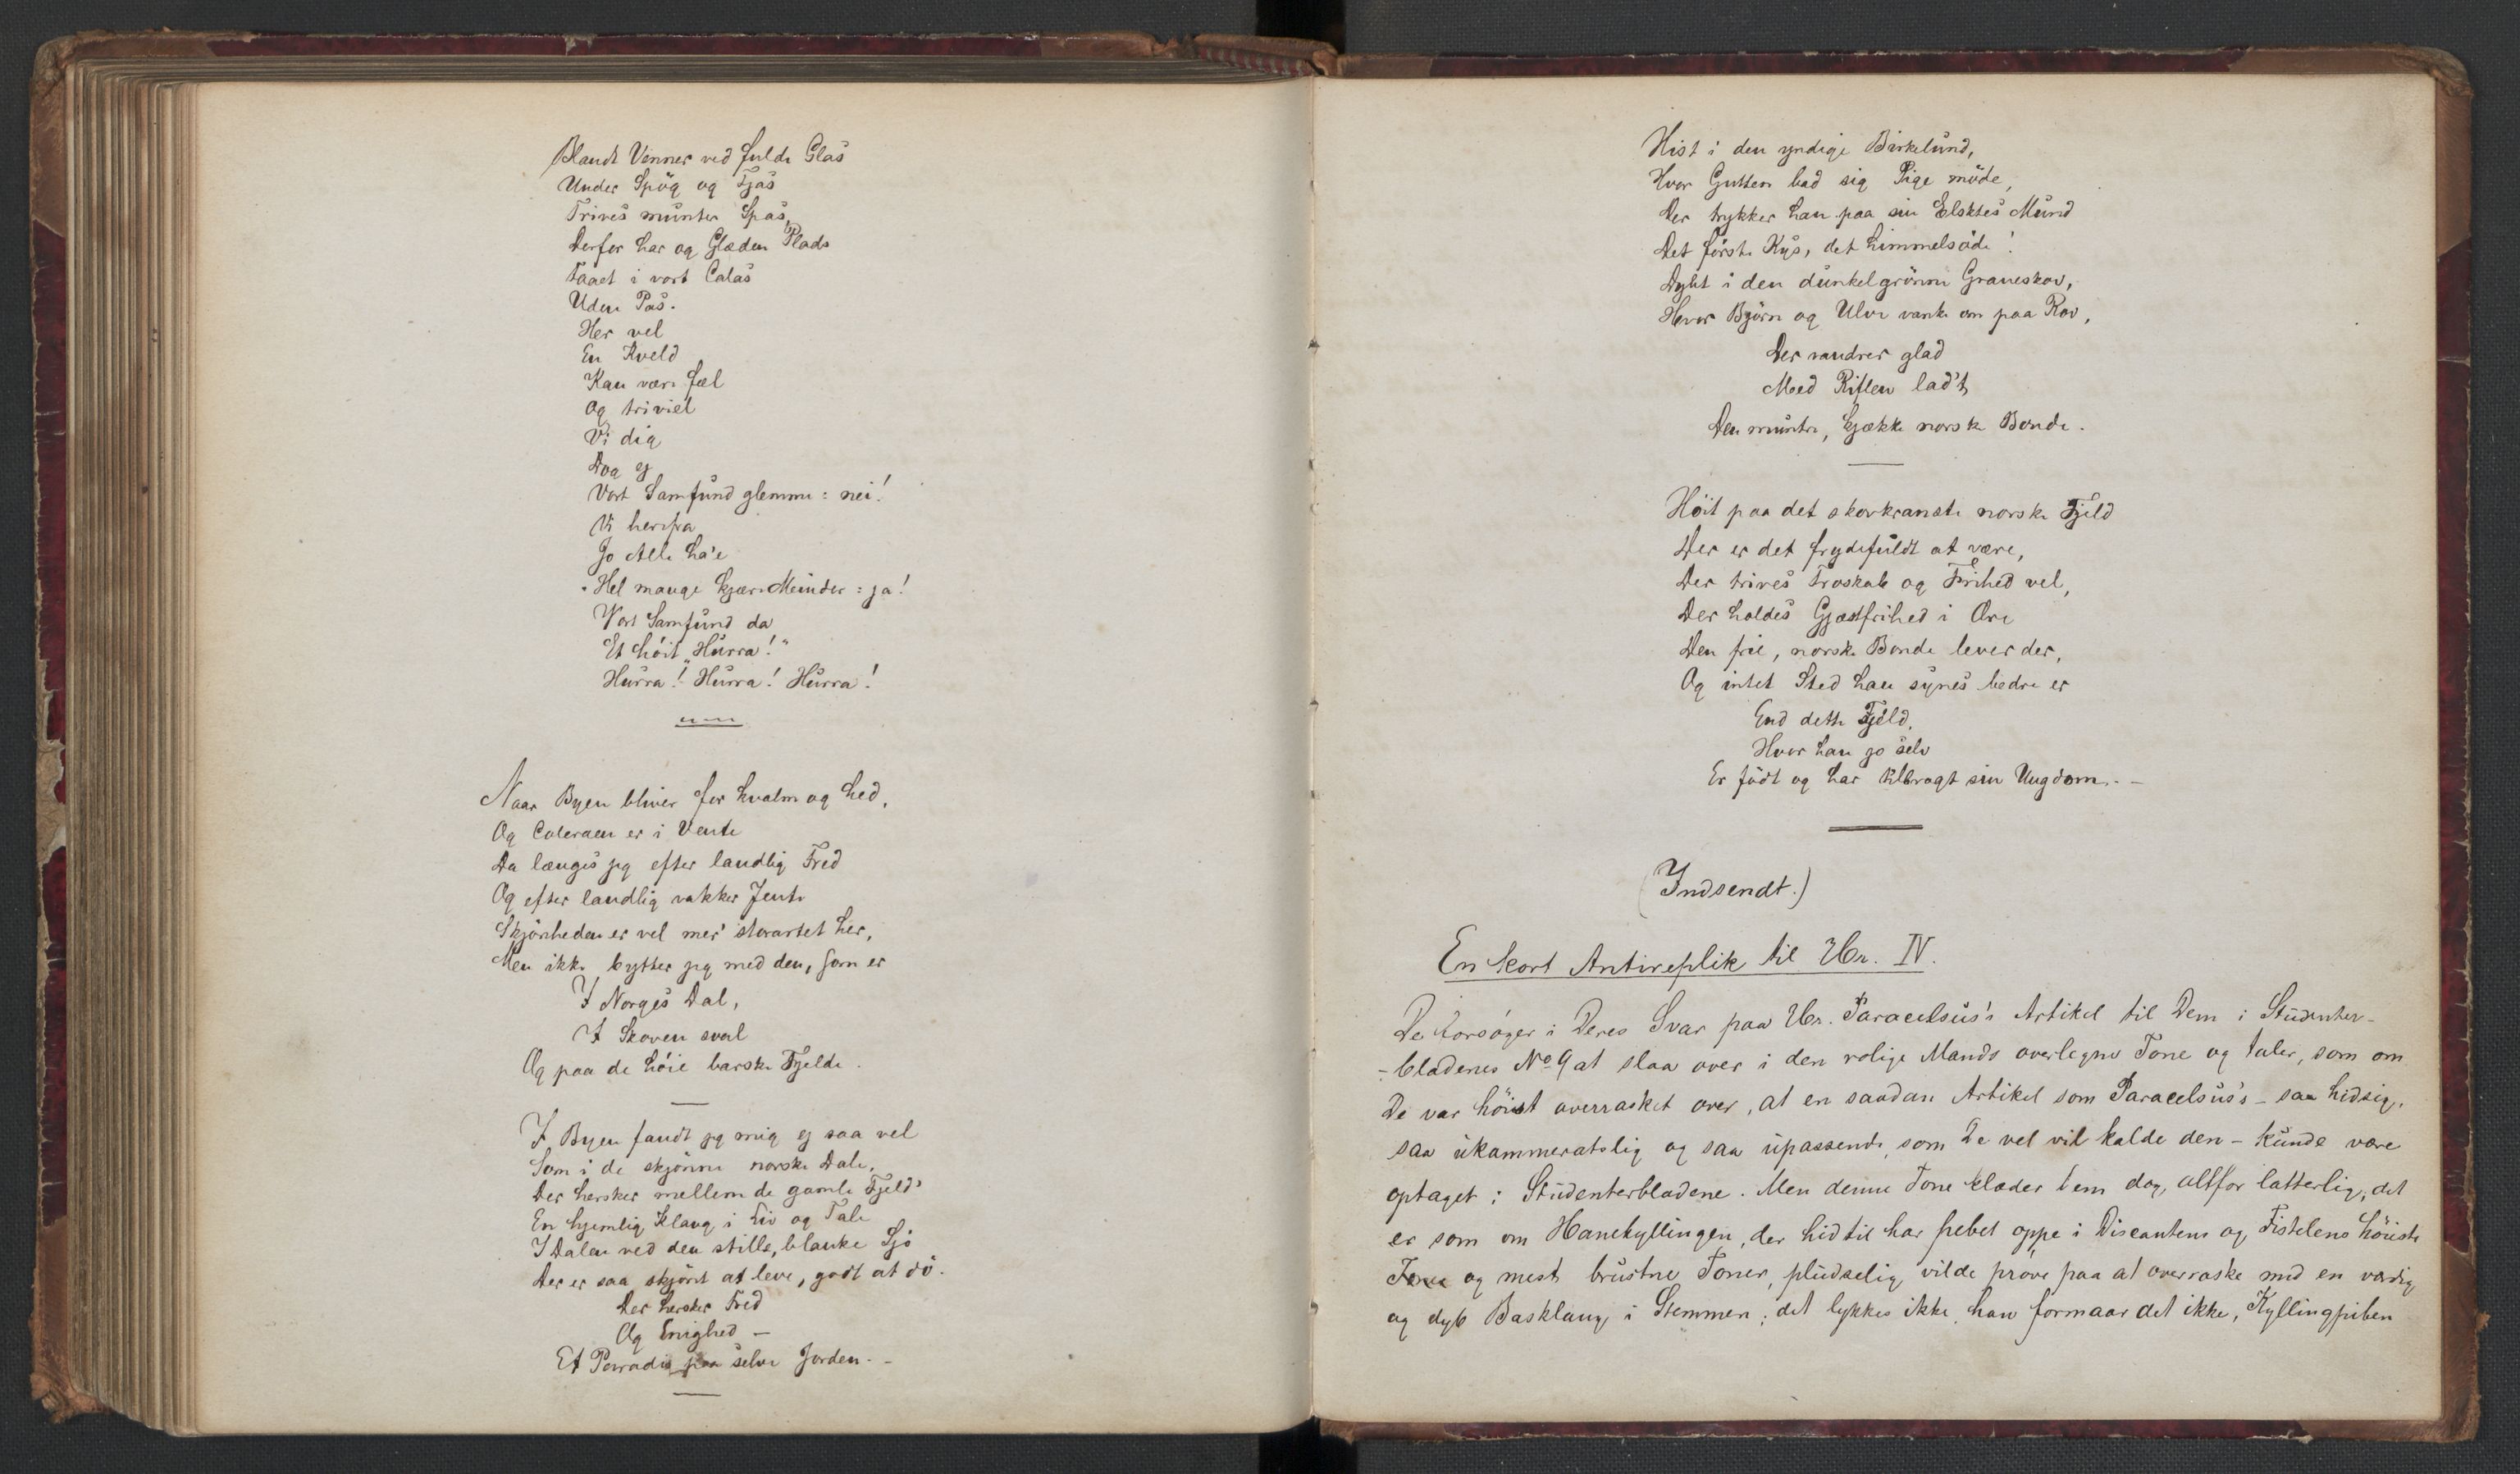 Blandt Venner ved fulde Glas
Under Spög og Fjas
Trives munter Spas,
Derfor har og Glæden Plads
Faaet i vort Calas
Uden Pas.
Her vel
En Kveld
Kan være fæl
Og triviel
Vi dig
Dog ej
Vort Samfund glemme: nei!
Vi herifra
Jo Alle ha'e
Hel mange kjære Minder: ja!
Vort Samfund da
Et höit „Hurra!"
Hurra! Hurra! Hurra!
Naar Byen bliver for kvalm og hed,
Og Coleraen er i Vente
Da længes jeg efter landlig Fred
Og efter landlig vakker Jente
Skjönheden er vel mer' storartet her,
Men ikke bytter jeg med den, som er
I Norges Dal,
I Skoven sval
Og paa de höie barske Fjelde.
I Byen fandt jeg mig ej saa vel
Som i de skjönne norske Dale,
Der hersker mellem de gamle Fjeld'
En hjemlig Klang i Liv og Tale
I Dalen ved den stille, blanke Sjö
Der er saa skjönt at leve, godt at dö.
Der hersker Fred
Og Enighed –
Et Paradis paa selve Jorden. –
Hist i den yndige Birkelund,
Hvor Gutten bad sig Pige möde,
Der trykker han paa sin Elsktes Mund
Det förste Kys, det himmelsöde!
Dybt i den dunkelgrönne Graneskov,
Hvor Björn og Ulve vanke om paa Rov,
Der vandrer glad
Med Riflen lad't
Den muntre, kjække norske Bonde.
Höit paa det skovkranste norske Fjeld
Der er det frydefuldt at være,
Der trives Troskab og Frihed vel,
Der holdes Gjæstfrihed i Ære
Den frie, norske Bonde lever der,
Og intet Sted han synes bedre er
End dette Fjeld,
Hvor han jo selv
Er födt og har tilbragt sin Ungdom. –
(Indsendt.)
En kort Antireplik til Hr. IV.
De forsöger i Deres Svar paa Hr. Paracelsus's Artikel til Dem i Studenter-
-bladenes No 9 at slaa over i den rolige Mands overlegne Tone og taler, som om
De var höist overrasket over, at en saadan Artikel som Paracelsus's – saa hidsig,
saa ukammeratslig og saa upassende, som De vel vil kalde den – kunde være
optaget i Studenterbladene. Men denne Tone klæder Dem dog altfor latterlig; det
er som om Hanekyllingen, der hidtil har pebet oppe i Discantens og Fistelens höieste
og mest brustne Toner, pludselig vilde pröve paa at overraske med en værdig
og dyb Basklang i Stemmen; det lykkes ikke, han formaar det ikke, Kyllingpiben